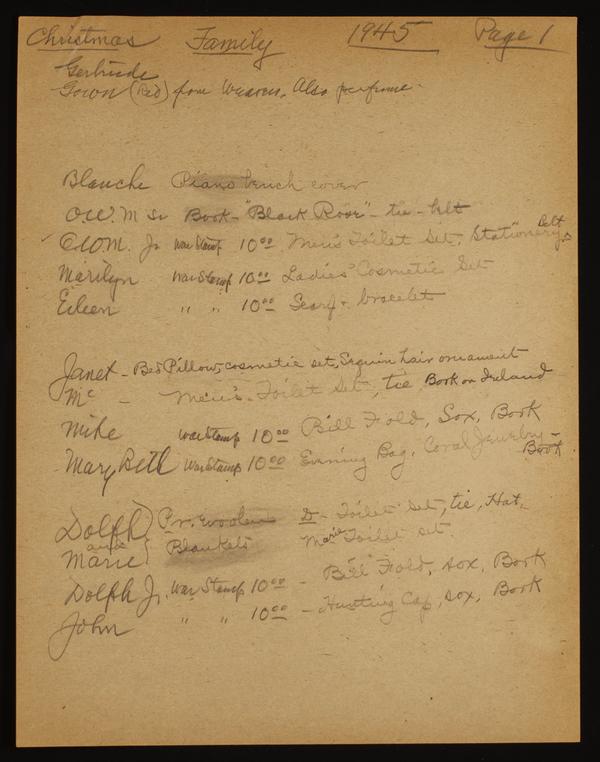 Christmas Family 1945 Page 1
Gertrude
Gown (Red) from Weavers. Also perfume.
Blanche Piano bench cover
O.W. M Sr Book - "Black Rose" - tie - belt
O.W.M. Jr War Stamp 10.00 Men's Toilet Set, Stationery, Belt
Marilyn War Stamp 10.00 Ladies' Cosmetic Set
Eileen " " 10.00 Scarf & bracelet
Janet - Bed Pillow, cosmetic set, Sequin hair ornament
Mc - Men's Toilet Set, tie, Book on Ireland
Mike War Stamp 10.00 Bill Fold, Sox, Book
Mary Beth War Stamp 10.00 Evening Bag, Coral Jewelry - Book
Dolph) Pr. Woolen D - Toilet Set, tie, Hat.
and Marie Blankets Marie Toilet set.
Dolph Jr. War Stamp 10.00 - Bill Fold, sox, Book
John " " 10.00 - Hunting Cap, sox, Book